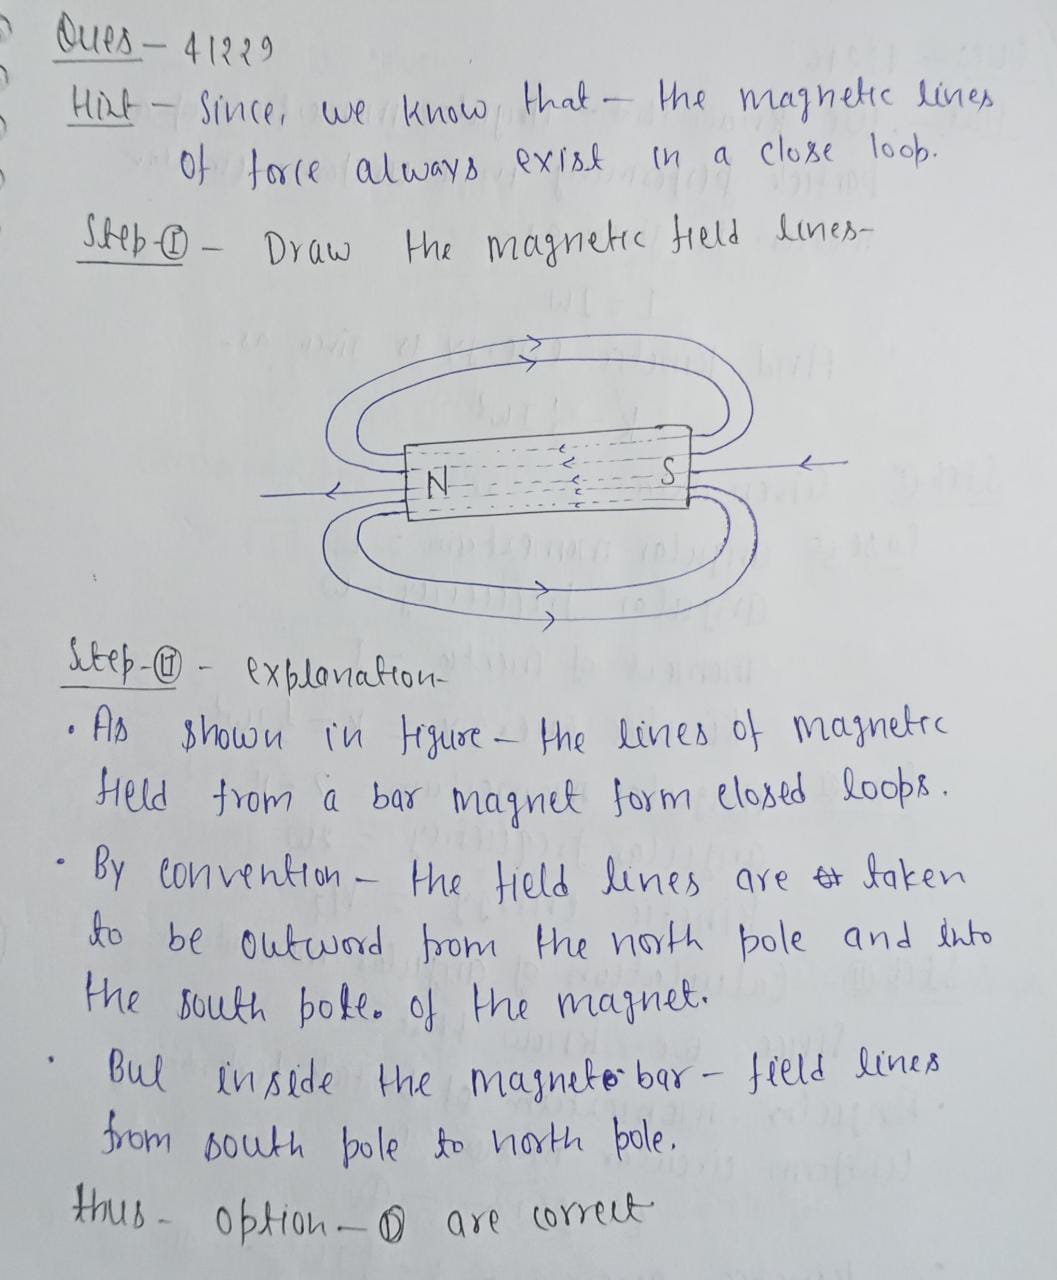 Ques - 41229
Hint - Since, we know that - the magnetic lines
of force always exist in a close loop.
Step-I - Draw the magnetic field lines-
N S
Step-II - explanation-
• As shown in figure - the lines of magnetic
field from a bar magnet form closed loops.
• By convention - the field lines are taken
to be outword from the north pole and into
the south pole. of the magnet.
• But inside the magnet bar - field lines
from south pole to north pole.
thus - option - ① are correct